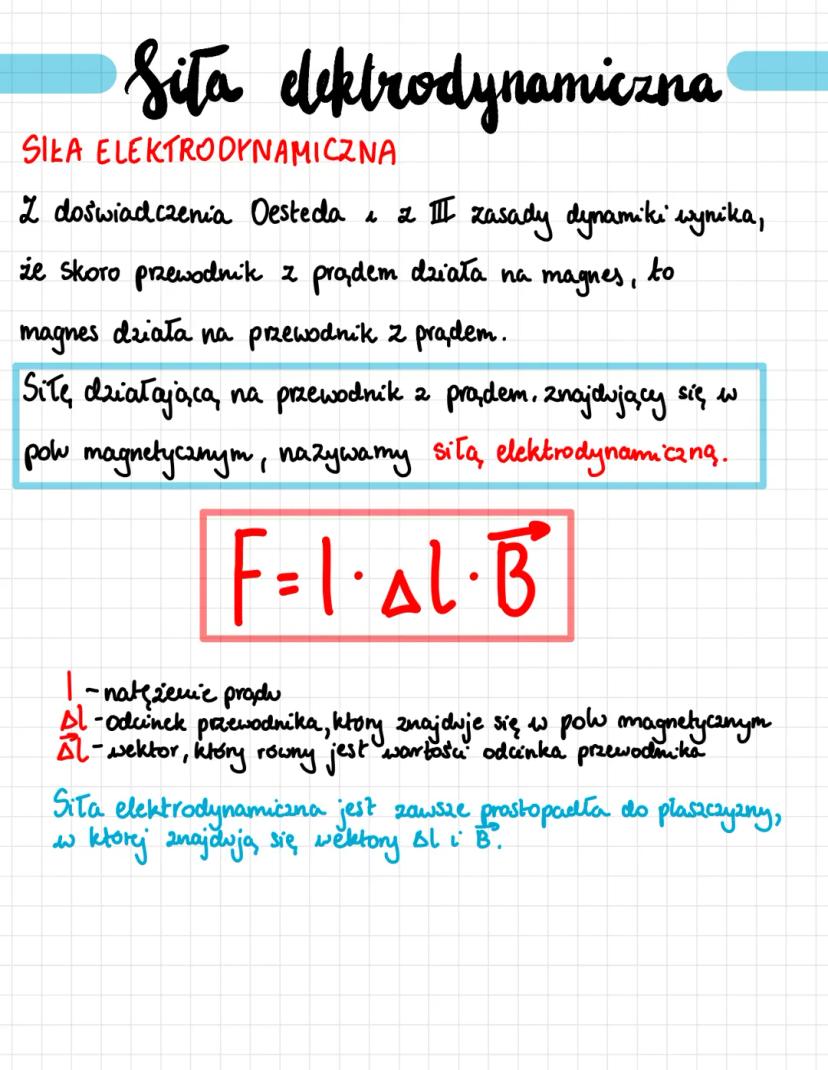 Siła elektrodynamiczna
SIŁA ELEKTRODYNAMICZNA
Z doświadczenia Oesteda i z III zasady dynamiki wynika,
że skoro przewodnik z prądem działa na magnes, to
magnes działa na przewodnik z prądem.
Siłę działającą na przewodnik z prądem, znajdujący się w
polu magnetycznym, nazywamy siłą elektrodynamiczną.
F = I · Δl · B⃗
I - natężenie prądu
Δl - odcinek przewodnika, który znajduje się w polu magnetycznym
Δl⃗ - wektor, który równy jest wartości odcinka przewodnika
Siła elektrodynamiczna jest zawsze prostopadła do płaszczyzny,
w której znajdują się wektory Δl i B⃗.